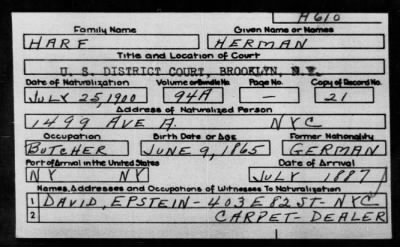 H610
Family Name Given Name or Names
HARF HERMAN
Title and Location of Court
U. S. DISTRICT COURT, BROOKLYN, N.Y.
Date of Naturalization Volume or Bundle No. Page No. Copy of Record No.
JULY 25, 1900 94A 21
Address of Naturalized Person
1499 AVE A. NYC
Occupation Birth Date or Age Former Nationality
BUTCHER JUNE 9, 1865 GERMAN
Port of Arrival in the United States Date of Arrival
NY NY JULY 1887
Names, Addresses and Occupations of Witnesses To Naturalization
1 DAVID, EPSTEIN - 403 E 82 ST - NYC
2 CARPET - DEALER